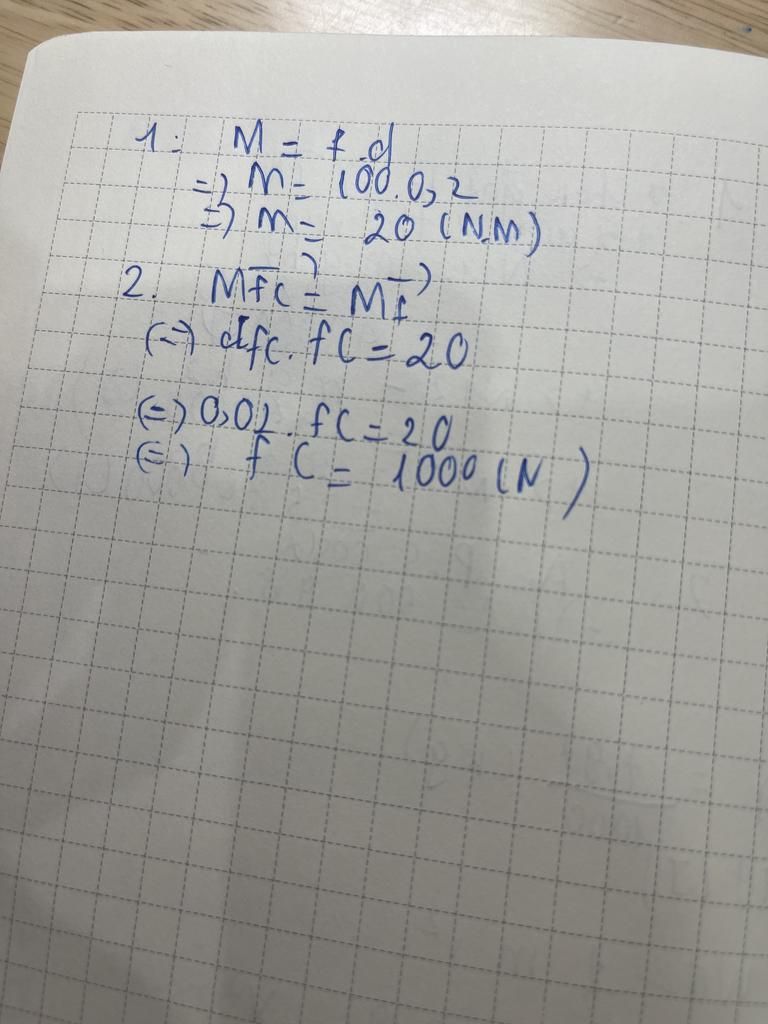 1: M = f.d
=> M = 100.0,2
=> M = 20 (N.M)
2. M fc⃗ = M f⃗
(=) dfc. fC = 20
(=) 0,02. fC = 20
(=) fC = 1000 (N)